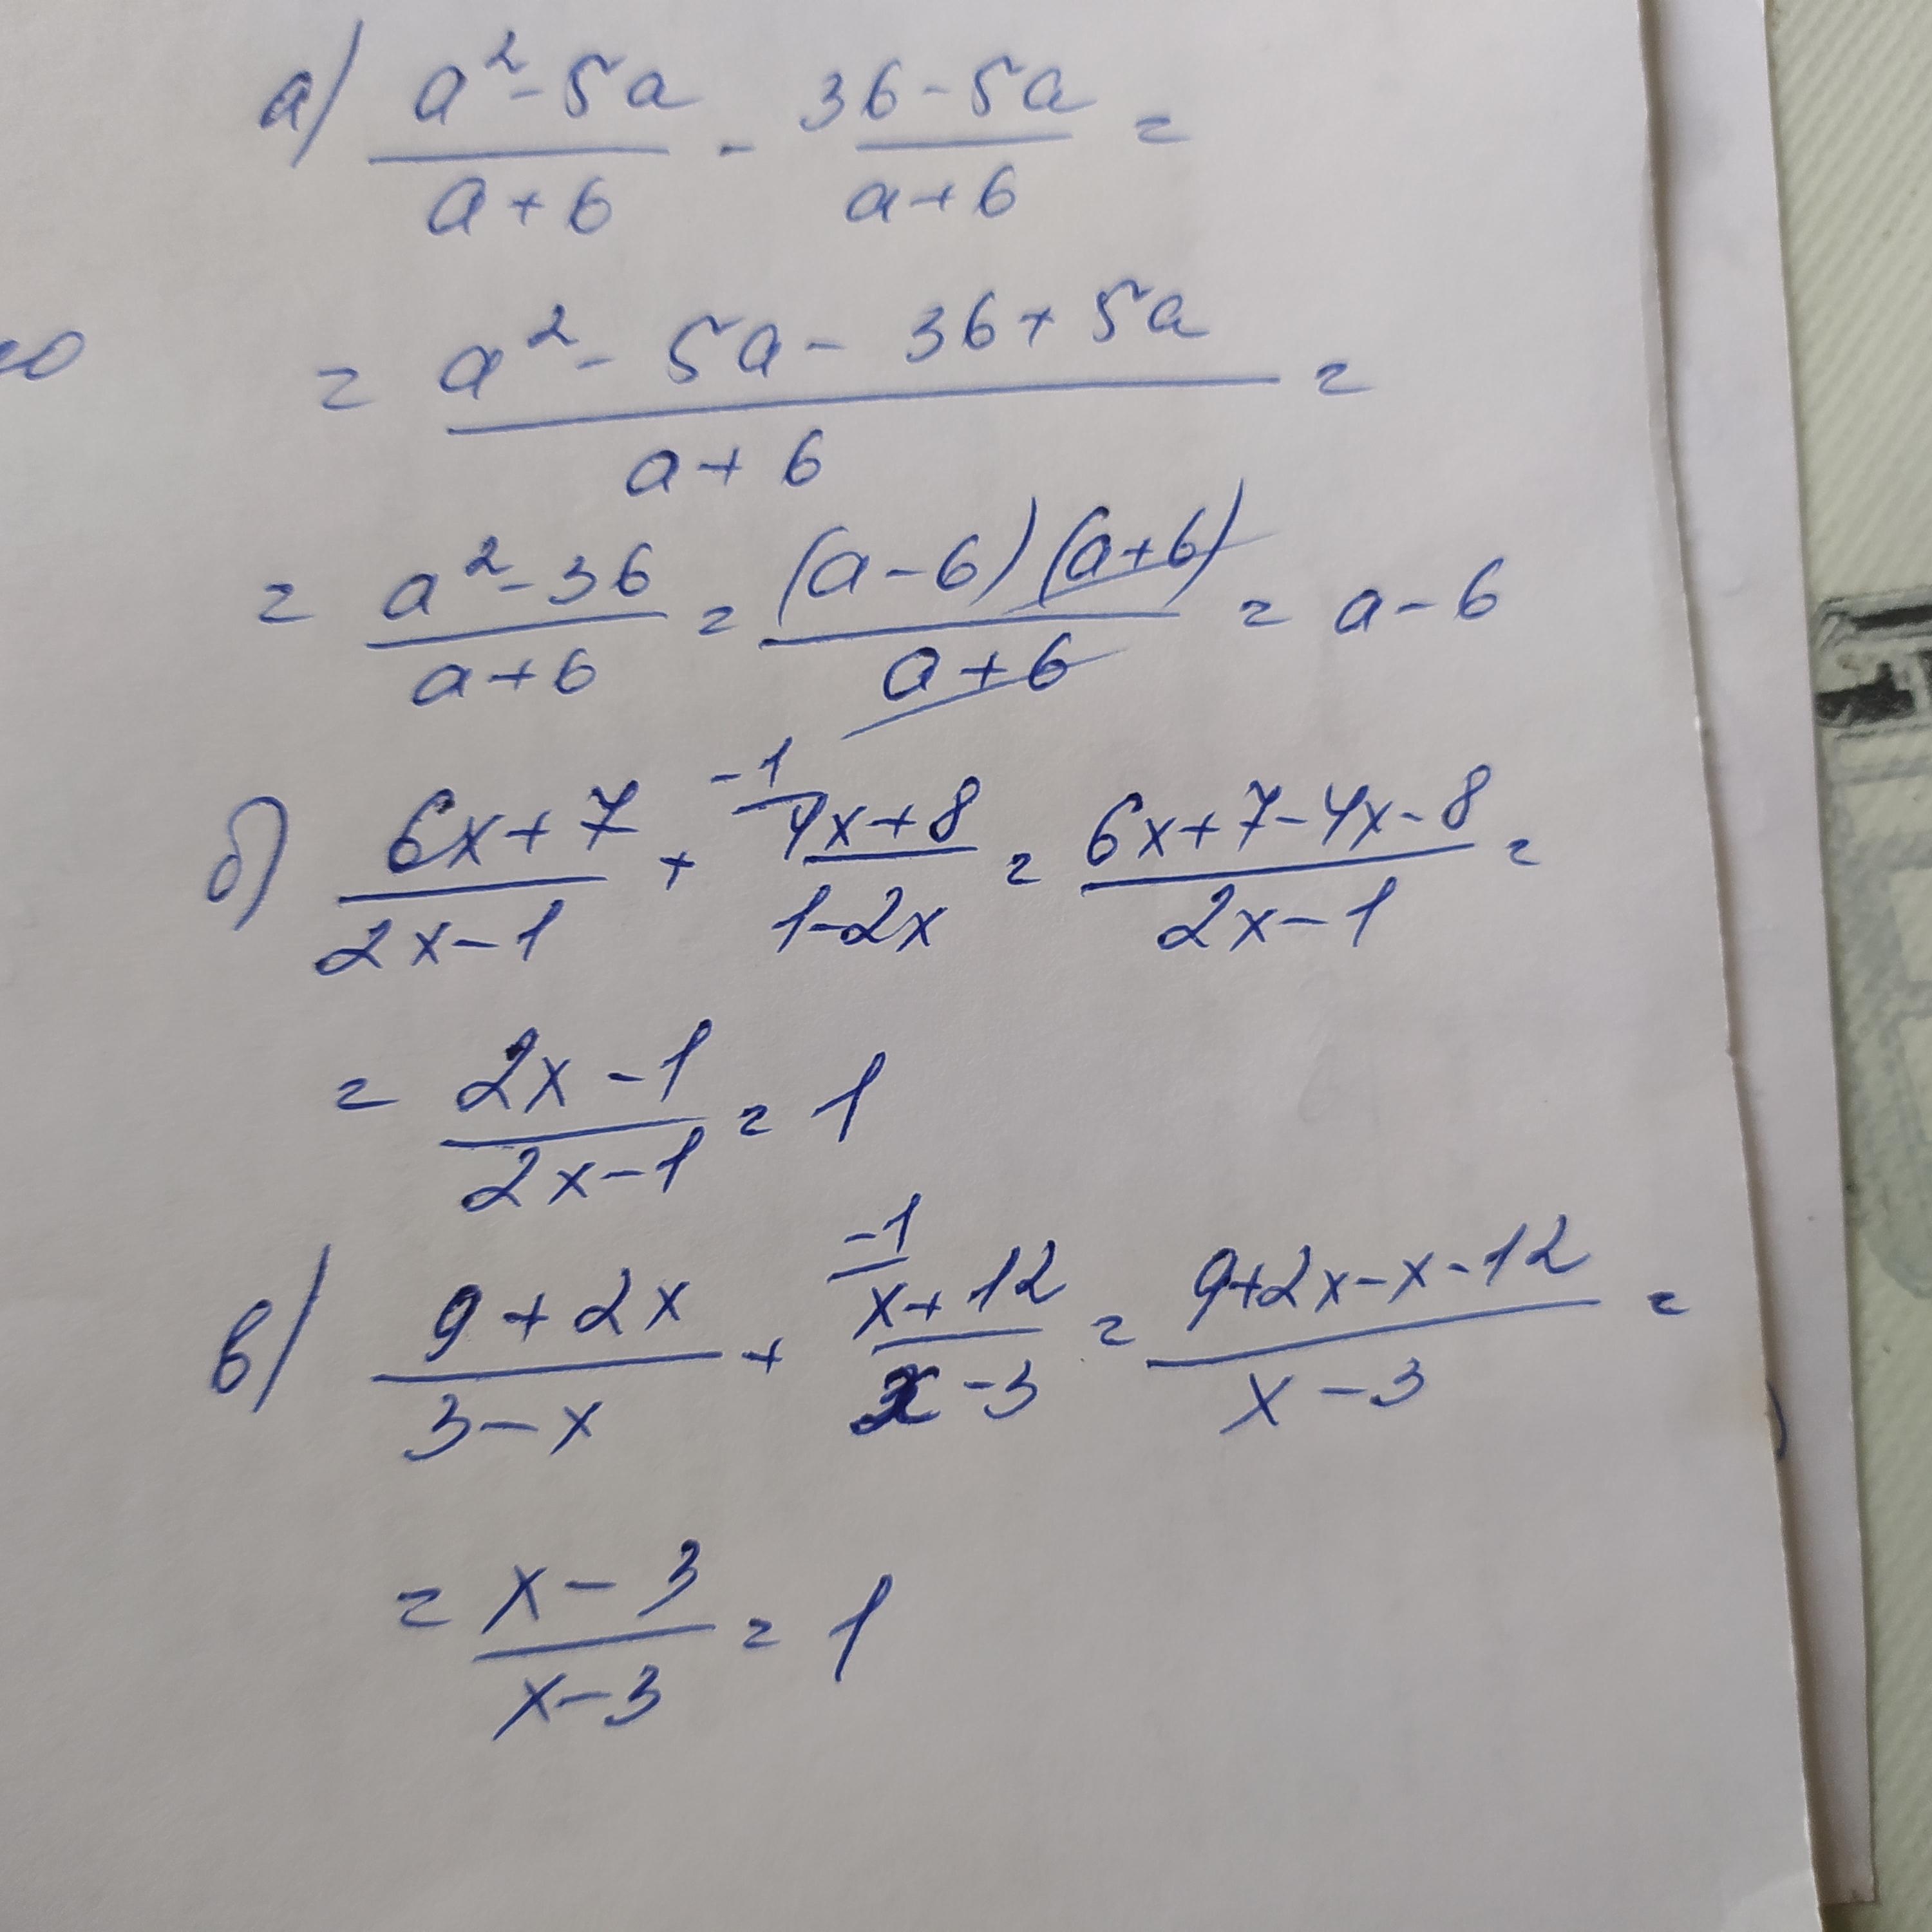 а) (a² - 5a)/(a + 6) - (36 - 5a)/(a + 6) =
= (a² - 5a - 36 + 5a)/(a + 6) =
= (a² - 36)/(a + 6) = ((a - 6)(a + 6))/(a + 6) = a - 6
б) (6x + 7)/(2x - 1) + -1 (4x + 8)/(1 - 2x) = (6x + 7 - 4x - 8)/(2x - 1) =
= (2x - 1)/(2x - 1) = 1
в) (9 + 2x)/(3 - x) + -1 (x + 12)/(x - 3) = (9 + 2x - x - 12)/(x - 3) =
= (x - 3)/(x - 3) = 1